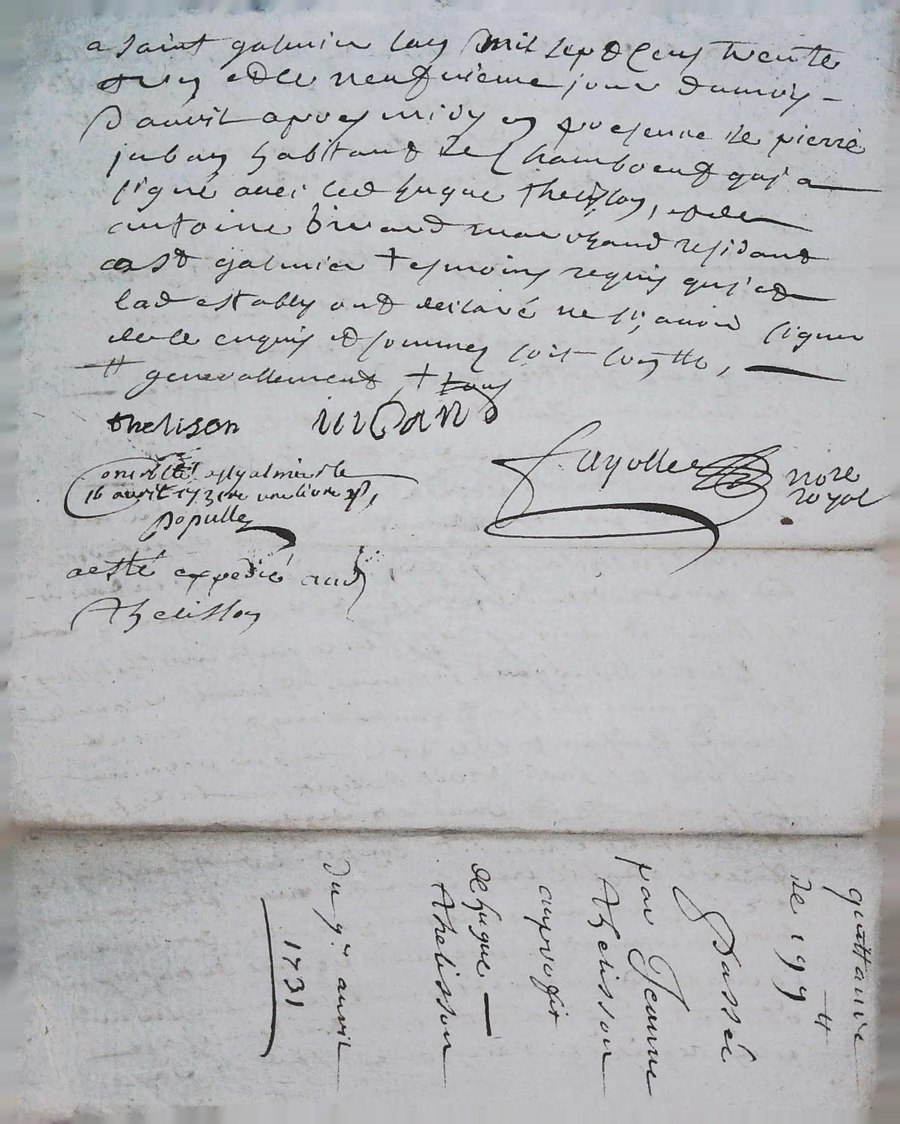 a saint galmier lan mil sept Cens trente
et un et le neufvieme jour du mois
D'avril apres midy en presence de pierre
juban habitant de Chambœuf qui a
signé avec led hugue thelisson, et de
antoine marchand residant
a St galmier tesmoins requis qui et
lad establye ont declaré ne sçavoir signer
de ce enquis et sommes soit Con^tlle,
# generallement, +
thelison juban
fayolle nore
royal
Controllé a St galmier le
16 avril 1731 une livre
Populle
a esté expedié aud
Thelisson
quittance
de 199 #
Passée
par Jeanne
Thelisson
au profit
de hugue
Thelisson
Du 9e avril
1731